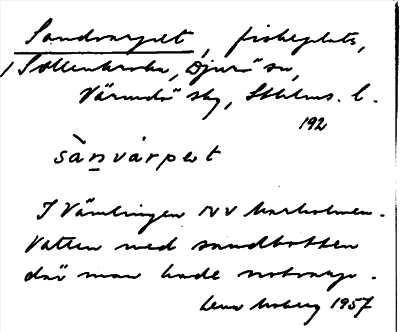 Sandvarpet, fiskeplats,
Sollenkroka, Djurö sn,
Värmdö skg, Sthlms. l.
192
sànvárpet
I Vämlingen NV Karholmen.
Vatten med sandbotten
där man hade notvarp.
Lena Moberg 1957